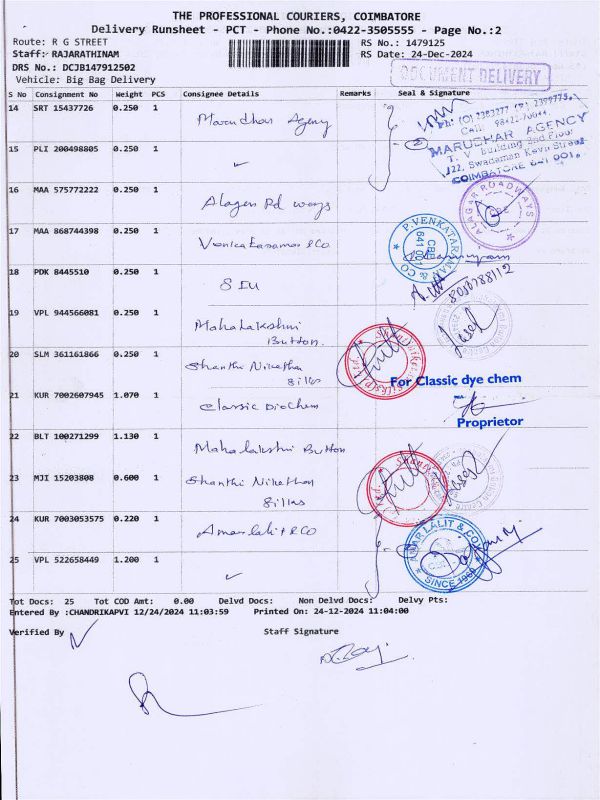 THE PROFESSIONAL COURIERS, COIMBATORE
Delivery Runsheet - PCT - Phone No.:0422-3505555 - Page No.:2
Route: R G STREET
RS No.: 1479125
Staff: RAJARATHINAM
RS Date: 24-Dec-2024
DRS No.: DCJB147912502
DOCUMENT DELIVERY
Vehicle: Big Bag Delivery
S No Consignment No Weight PCS Consignee Details Remarks Seal & Signature
14 SRT 15437726 0.250 1 Marudhar Agency
Ph: (O) 2383277 (R) 2399775
MARUDHAR AGENCY
T. V. Building 2nd Floor
COIMBATORE 641 001.
15 PLI 200498805 0.250 1 ✓
16 MAA 575772222 0.250 1 Alagar Rd ways
ALAGAR ROADWAYS
CBE
17 MAA 868744398 0.250 1
P.VENKATARAMAN & CO
CBE
641 001
18 PDK 8445510 0.250 1
8050788112
19 VPL 944566081 0.250 1 Mahalakshmi
Button.
20 SLM 361161866 0.250 1 Shanthi Nikethan
Silks
For Classic dye chem
21 KUR 7002607945 1.070 1 Classic DioChem
Proprietor
22 BLT 100271299 1.130 1 Mahalakshmi Button
23 MJI 15203808 0.600 1 Shanthi Nikethan
Silks
24 KUR 7003053575 0.220 1 Amarlalit & CO
AMAR LALIT & CO
SINCE 1960
25 VPL 522658449 1.200 1 ✓
Tot Docs: 25 Tot COD Amt: 0.00 Delvd Docs: Non Delvd Docs: Delvy Pts:
Entered By :CHANDRIKAPVI 12/24/2024 11:03:59 Printed On: 24-12-2024 11:04:00
Verified By
Staff Signature